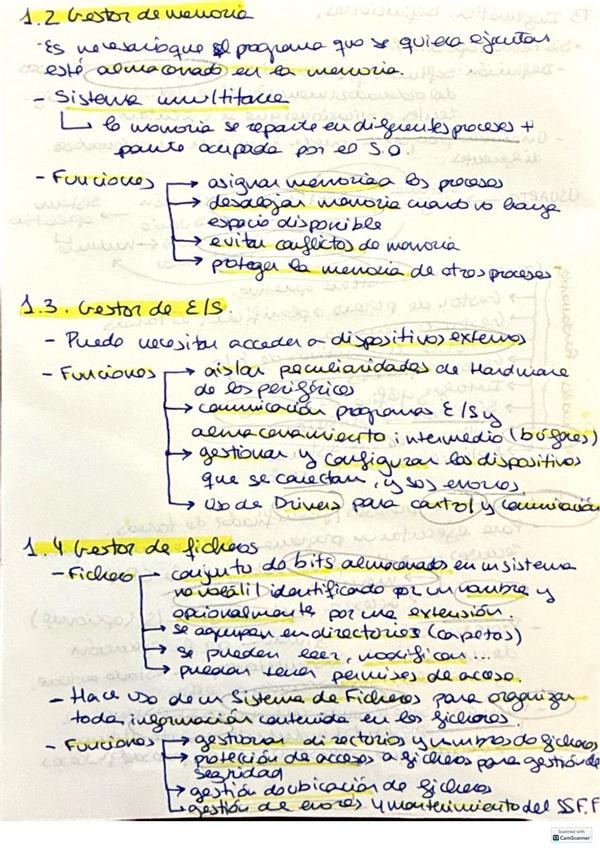 1.2 Gestor de memoria
- Es necesario que el programa que se quiera ejecutar
esté almacenado en la memoria.
- Sistema multitarea
la memoria se reparte en diferentes procesos +
parte ocupada por el S.O.
- Funciones → asignar memoria a los procesos
→ desalojar memoria cuando no haya
espacio disponible
→ evitar conflictos de memoria
→ proteger la memoria de otros procesos
1.3. Gestor de E/S.
- Puede necesitar acceder a dispositivos externos
- Funciones → aislar peculiaridades de Hardware
de los periféricos
→ comunicación programas E/S y
almacenamiento intermedio (búferes)
→ gestionar y configurar los dispositivos
que se conectan, y sos errores
→ Uso de Drivers para control y comunicación
1.4 Gestor de ficheros
- Fichero conjunto de bits almacenados en un sistema
no volátil identificado por un nombre y
opcionalmente por una extensión.
→ se agrupan en directorios (carpetas)
→ se pueden leer, modificar...
→ pueden tener permisos de acceso.
- Hace uso de un Sistema de Ficheros para organizar
toda información contenida en los ficheros.
- Funciones → gestionar directorios y nombres de ficheros
→ protección de accesos a ficheros para gestión de
seguridad
→ gestión de ubicación de ficheros
→ gestión de errores y mantenimiento del SS.FF
Scanned with
CamScanner